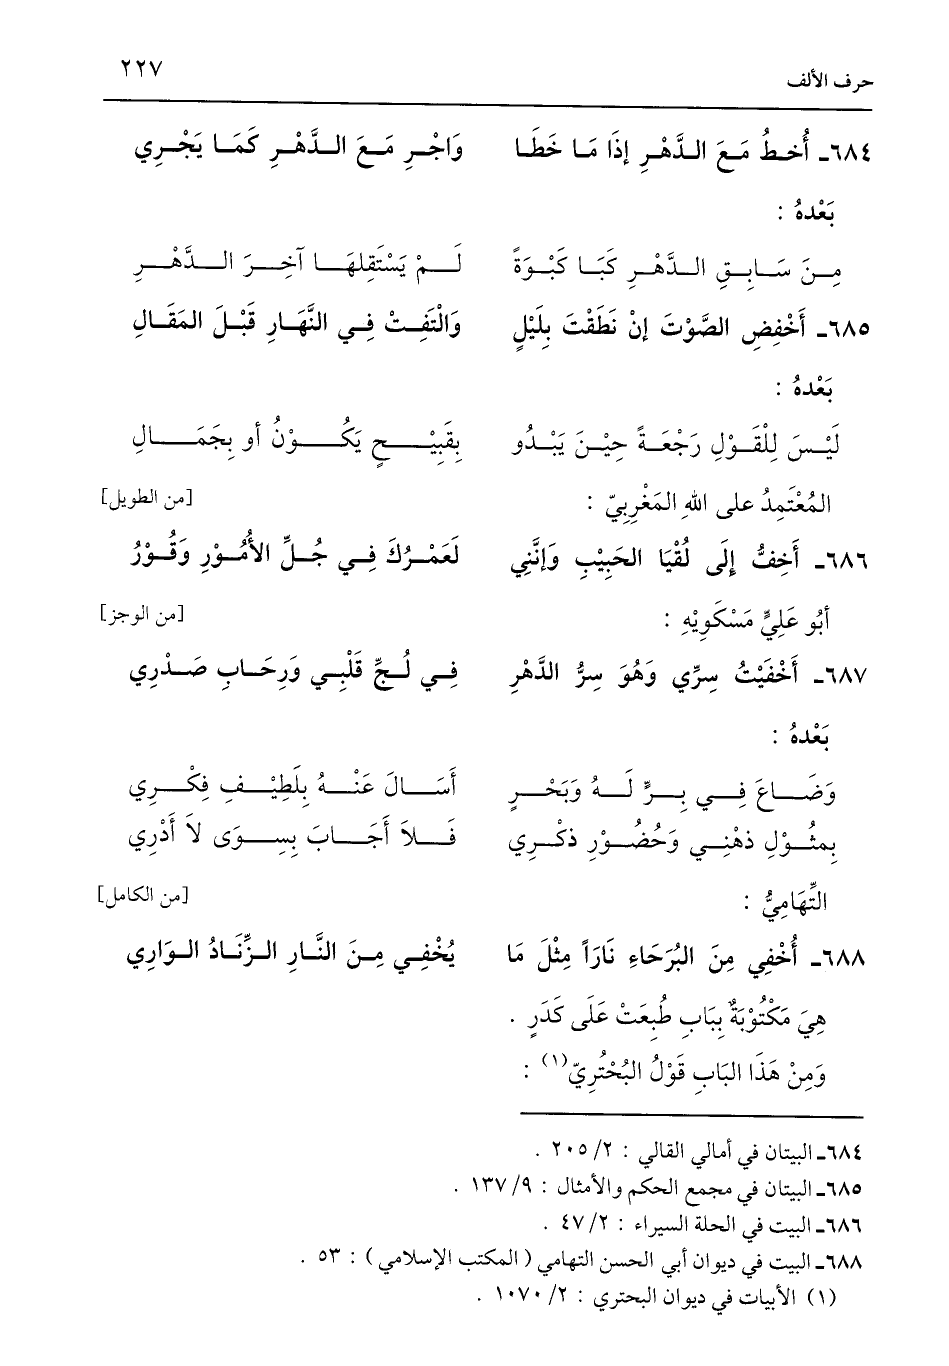 حرف الألف ٢٢٧
٦٨٤ـ أُخـطُ مَـعَ الـدَّهْـرِ إذَا مَـا خَطَـا وَاجْـرِ مَـعَ الـدَّهْـرِ كَمَـا يَجْـرِي
بَعْدهُ :
مِـنَ سَـابِـقِ الـدَّهْـرِ كَبَـا كَبْـوَةً لَـمْ يَسْتَقِلهَـا آخِـرَ الـدَّهْـرِ
٦٨٥ـ أَخْفِضِ الصَّوْتَ إنْ نَطَقْتَ بِلَيْلٍ وَالْتَفِـتْ فِـي النَّهَـارِ قَبْـلَ المَقَـالِ
بَعْدهُ :
لَيْـسَ لِلْقَـوْلِ رَجْعَـةً حِيْـنَ يَبْـدُو بِقَبِيْـحٍ يَكُـوْنُ أو بِجَمَـالِ
المُعْتَمِدُ على اللهِ المَغْرِبِيّ : [من الطويل]
٦٨٦ـ أَخِفُّ إِلَى لُقْيَا الحَبِيْبِ وَإنَّنِي لَعَمْـرُكَ فِـي جُـلِّ الأُمُـوْرِ وَقُـوْرُ
أبُو عَلِيٍّ مَسْكَوِيْهِ : [من الوجز]
٦٨٧ـ أَخْفَيْتُ سِرِّي وَهُوَ سِرُّ الدَّهْرِ فِـي لُـجِّ قَلْبِـي وَرِحَـابِ صَـدْرِي
بَعْدهُ :
وَضَـاعَ فِـي بِـرٍّ لَـهُ وَبَحْـرٍ أَسَـالَ عَنْـهُ بِلَطِيْـفِ فِكْـرِي
بِمثُـوْلِ ذهْنِـي وَحُضُـوْرِ ذكْـرِي فَـلاَ أَجَـابَ بِسِـوَى لاَ أَدْرِي
التِّهَامِيُّ : [من الكامل]
٦٨٨ـ أُخْفِي مِنَ البُرَحَاءِ نَارَاً مِثْلَ مَا يُخْفِـي مِـنَ النَّـارِ الـزِّنَـادُ الـوَارِي
هِيَ مَكْتُوْبَةٌ بِبَابِ طُبِعَتْ عَلَى كَدَرٍ .
وَمِنْ هَذَا البَابِ قَوْلُ البُحْتُرِيّ(١) :
٦٨٤ـ البيتان في أمالي القالي : ٢/ ٢٠٥ .
٦٨٥ـ البيتان في مجمع الحكم والأمثال : ٩/ ١٣٧ .
٦٨٦ـ البيت في الحلة السيراء : ٢/ ٤٧ .
٦٨٨ـ البيت في ديوان أبي الحسن التهامي ( المكتب الإسلامي ) : ٥٣ .
(١) الأبيات في ديوان البحتري : ٢/ ١٠٧٠ .